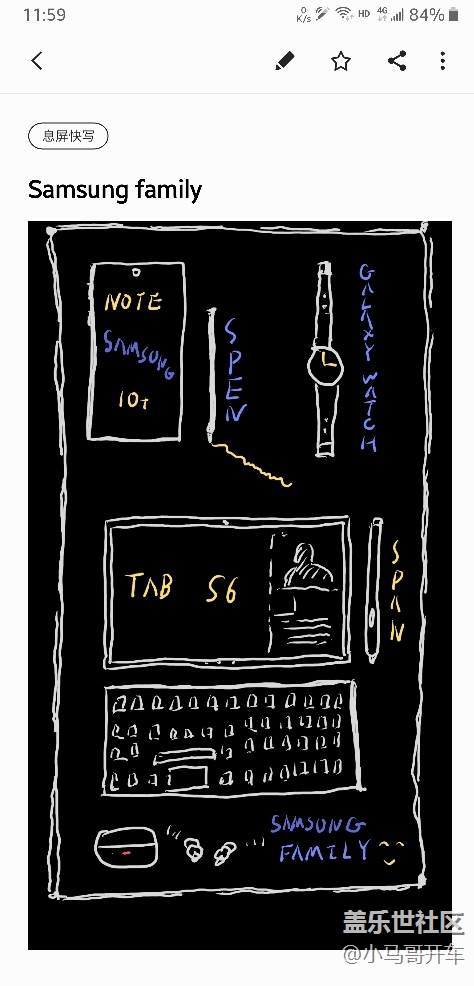 11:59
0 K/s HD 4G 84%
息屏快写
Samsung family
NOTE
SAMSUNG
10+
SPEN
GALAXY WATCH
TAB S6
SPAN
SAMSUNG
FAMILY
盖乐世社区
@小马哥开车